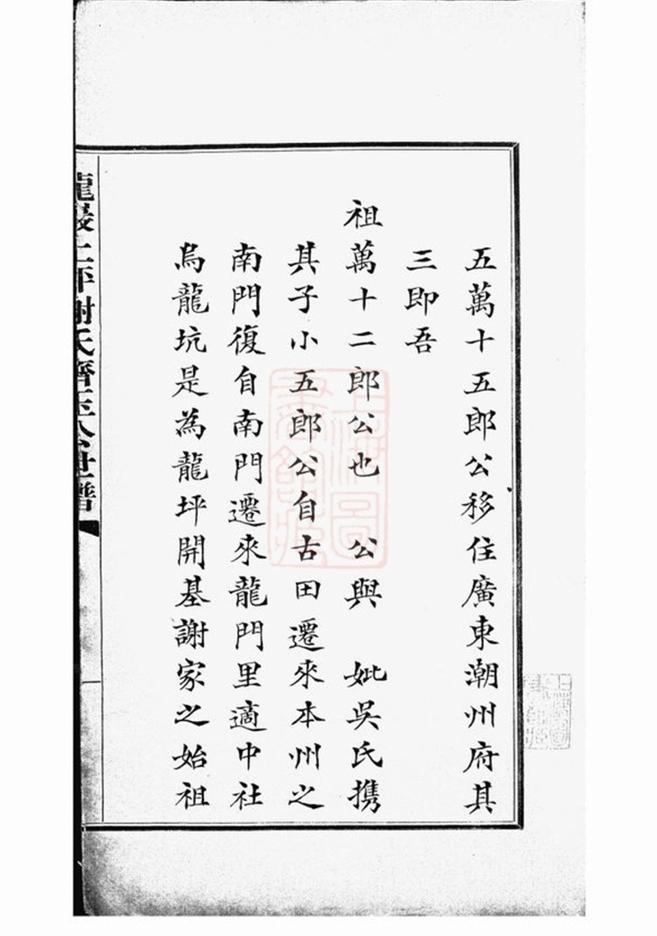 五萬十五郎公移住廣東潮州府其
三即吾
祖萬十二郎公也　公與　妣吳氏携
其子小五郎公自古田遷來本州之
南門復自南門遷來龍門里適中社
烏龍坑是為龍坪開基謝家之始祖
龍巖上坪謝氏齊玉公世譜
上海圖書館藏